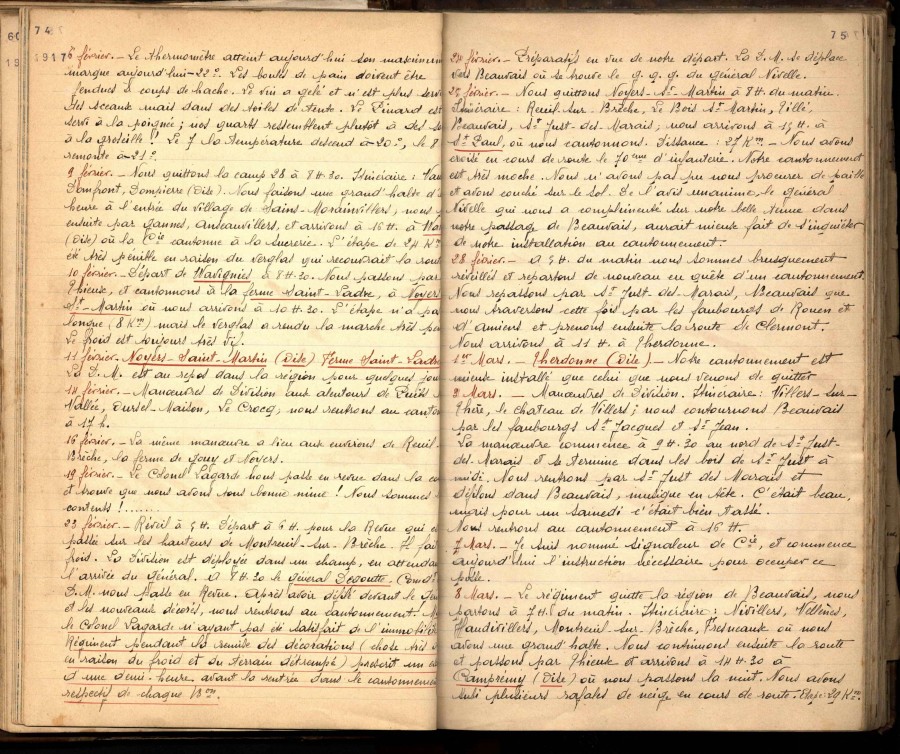 74
1917
6 février. - Le thermomètre atteint aujourd'hui son maximum
marque aujourd'hui -22°. Les boules de pain doivent être
fendues à coups de hache. Le vin a gelé et n'est plus
des sceaux mais dans des toiles de tente. Le Pinard est
servi à la poignée ; nos quarts ressemblent plutôt à des
à la groseille ! Le 7 la température descend à -20°, le 8
remonte à -21°.
9 février. - Nous quittons le camp 28 à 8 H. 30. Itinéraire :
Domfront, Dompierre (Oise). Nous faisons une grand'halte d'
heure à l'entrée du village de Sains-Morainvillers, nous
ensuite par Gannes, Ansauvillers, et arrivons à 16 H. à
(Oise) où la Cie cantonne à la sucrerie. L'étape de 24 Km
été très pénible en raison du verglas qui recouvrait la
10 février. - Départ de Wavignies à 8 H. 30. Nous passons par
Thieux, et cantonnons à la ferme Saint-Ladre, à Noyers
St-Martin où nous arrivons à 10 H. 30. L'étape n'a pas
longue, (8 Km) mais le verglas a rendu la marche très
Le froid est toujours très vif.
11 février. Noyers-Saint-Martin (Oise) Ferme Saint-Ladre
La D. M. est au repos dans la région pour quelques
14 février. - Manœuvres de Division aux alentours de Puits
Vallée, Oursel-Maison, Le Crocq, nous rentrons au
à 17 h.
16 février. - La même manœuvre a lieu aux environs de Reuil
Brèche, la ferme de Gouy et Noyers.
19 février. - Le Colonel Lagarde nous passe en revue dans la
et trouve que nous avons tous bonne mine ! Nous sommes
contents !.......
23 février. - Réveil à 5 H. Départ à 6 H. pour la Revue qui
passée sur les hauteurs de Montreuil-sur-Brèche. Il fait
froid. La Division est déployée dans un champ, en attendant
l'arrivée du général. A 8 H. 30 le général Degoutte. (Comdt
D. M. nous passe en Revue. Après avoir défilé devant le
et les nouveaux décorés, nous rentrons au cantonnement.
le Colonel Lagarde n'ayant pas été satisfait de l'immobilité
Régiment pendant la remise des décorations (chose très
en raison du froid et du terrain détrempé) prescrit un
d'une demi-heure avant la rentrée dans le cantonnement
respectif de chaque Bon.
75
24 février. - Préparatifs en vue de notre départ. La D. M. se déplace
vers Beauvais où se trouve le G. Q. G. du général Nivelle.
25 février. - Nous quittons Noyers-St-Martin à 8 H. du matin.
Itinéraire : Reuil-sur-Brèche, Le Bois St-Martin, Tillé,
Beauvais, St Just-des-Marais, nous arrivons à 15 H. à
St Paul, où nous cantonnons. Distance : 27 Km. - Nous avons
croisé en cours de route le 70ème d'infanterie. Notre cantonnement
est très moche. Nous n'avons pas pu nous procurer de paille
et avons couché sur le sol. De l'avis unanime, le général
Nivelle qui nous a complimenté sur notre belle tenue dans
notre passage de Beauvais, aurait mieux fait de s'inquiéter
de notre installation au cantonnement.
28 février. - A 5 H. du matin nous sommes brusquement
réveillés et repartons de nouveau en quête d'un cantonnement.
Nous repassons par St Just-des-Marais, Beauvais que
nous traversons cette fois par les faubourgs de Rouen et
d'Amiens et prenons ensuite la route de Clermont.
Nous arrivons à 11 H. à Therdonne.
1er Mars. - Therdonne (Oise) - Notre cantonnement est
mieux installé que celui que nous venons de quitter
3 Mars. - Manœuvres de Division. Itinéraire : Villers-sur-
Thère, le chateau de Villers ; nous contournons Beauvais
par les faubourgs St Jacques et St Jean.
La manœuvre commence à 9 H. 30 au nord de St-Just-
des-Marais et se termine dans les bois de St Just à
midi. Nous rentrons par St Just des Marais et
défilons dans Beauvais, musique en tête. C'était beau,
mais pour un samedi c'était bien tassé.
Nous rentrons au cantonnement à 16 H.
7 Mars. - Je suis nommé signaleur de Cie, et commence
aujourd'hui l'instruction nécessaire pour occuper ce
poste.
8 Mars. - Le régiment quitte la région de Beauvais, nous
partons à 7 H. du matin. Itinéraire : Nivillers, Velennes,
Haudivillers, Montreuil-sur-Brèche, Fresneaux où nous
avons une grand'halte. Nous continuons ensuite la route
et passons par Thieux et arrivons à 14 H. 30 à
Campremy (Oise) où nous passons la nuit. Nous avons
subi plusieurs rafales de neige en cours de route. Etape : 29 Km.